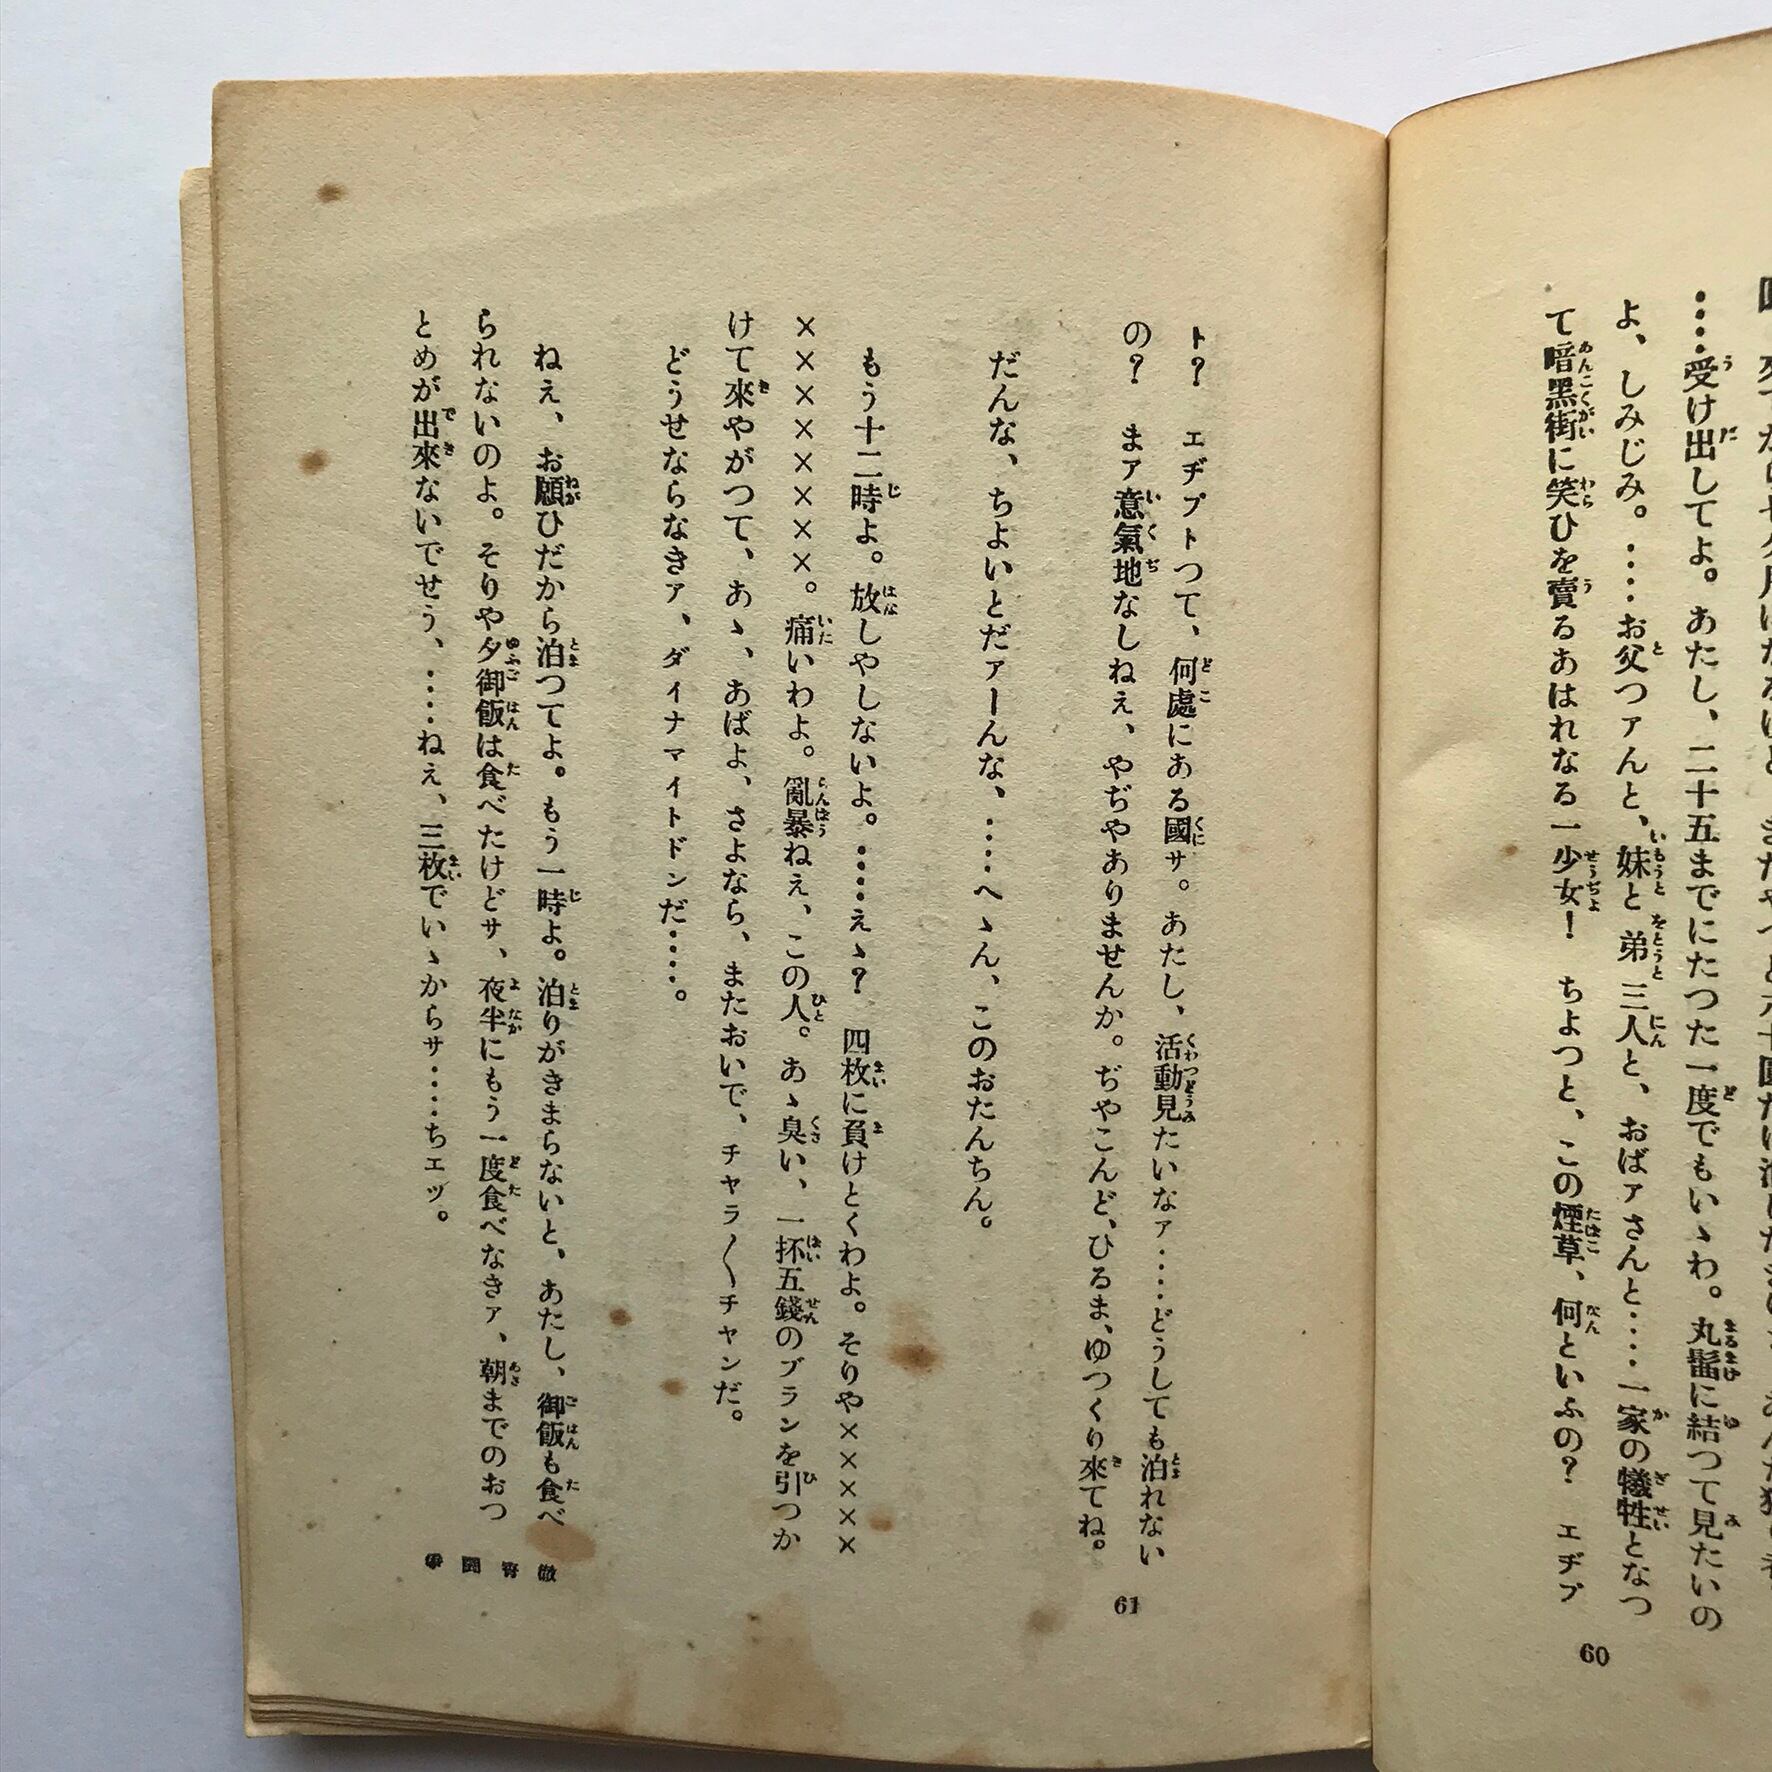 ‥‥受け出してよ。あたし、二十五までにたつた一度でもいゝわ。丸髷に結つて見たいの
よ、しみじみ。‥‥お父つァんと、妹と弟三人と、おばァさんと‥‥一家の犠牲となつ
て暗黑街に笑ひを賣るあはれなる一少女！　ちよつと、この煙草、何といふの？　エヂプ
60
ト？　エヂプトつて、何處にある國サ。あたし、活動見たいなァ‥‥どうしても泊れない
の？　まァ意氣地なしねぇ、やぢやありませんか。ぢやこんど、ひるま、ゆつくり來てね。
だんな、ちよいとだァーんな、‥‥へゝん、このおたんちん。
もう十二時よ。放しやしないよ。‥‥えゝ？　四枚に負けとくわよ。そりや×××××
××××××××。痛いわよ。亂暴ねぇ、この人。あゝ臭い、一抔五錢のブランを引つか
けて來やがつて、あゝ、あばよ、さよなら、またおいで、チャラ〳〵チャンだ。
どうせならなきァ、ダイナマイトドンだ‥‥。
ねえ、お願ひだから泊つてよ。もう一時よ。泊りがきまらないと、あたし、御飯も食べ
られないのよ。そりや夕御飯は食べたけどサ、夜半にもう一度食べなきァ、朝までのおつ
とめが出來ないでせう、‥‥ねえ、三枚でいゝからサ‥‥ちェッ。
61